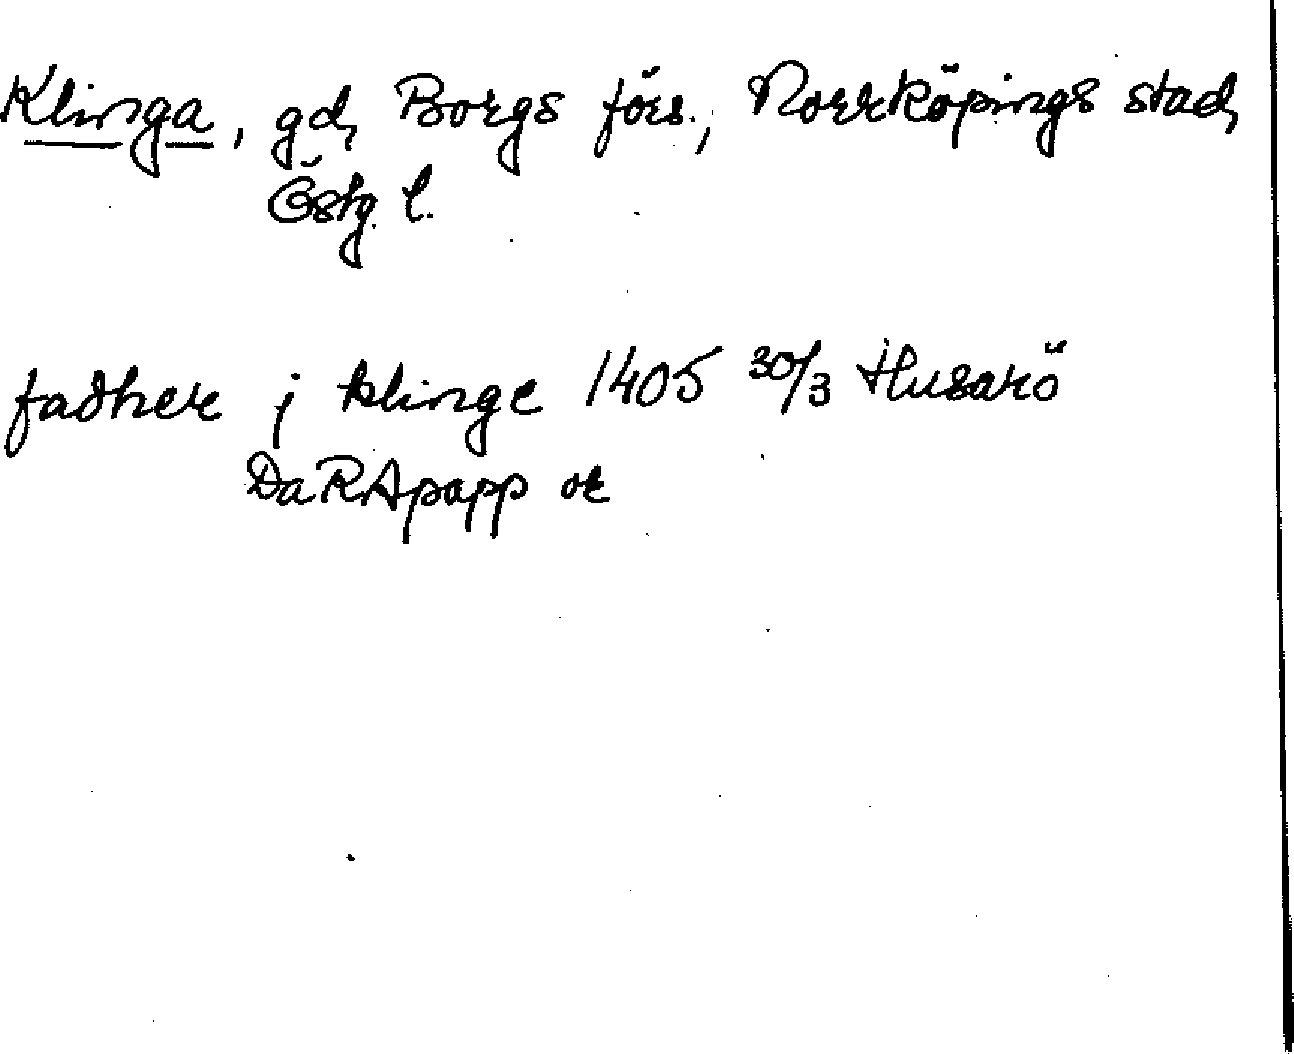 Klinga, gd, Borgs förs., Norrköpings stad,
Östg. l.
fadher j klinge 1405 30/3 Husarö
DaRApapp or